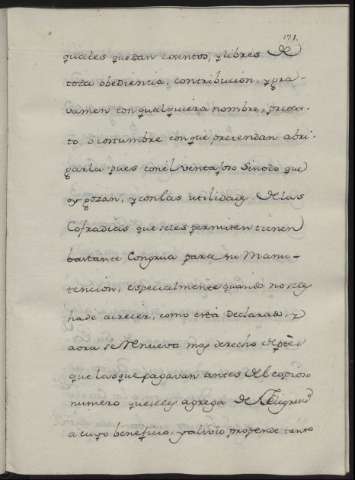 171.
quales quedan esentos, y libres de
toda obediencia, contribucion, y gra-
vamen con qualquiera nombre, pretex-
to, o costumbre con que pretendan abri-
garla pues con el ventajoso Sinodo que
oy gozan, y con las utilidades de las
Cofradias que seles permiten tienen
bastante Congrua para su Manu-
tencion, especialmente quando no seles
hade acrecer, como está declarado, y
aora se renueva mas derecho
que los que pagavan antes del copioso
numero que seles agrega de
a cuyo beneficio, y alivio propende tanto